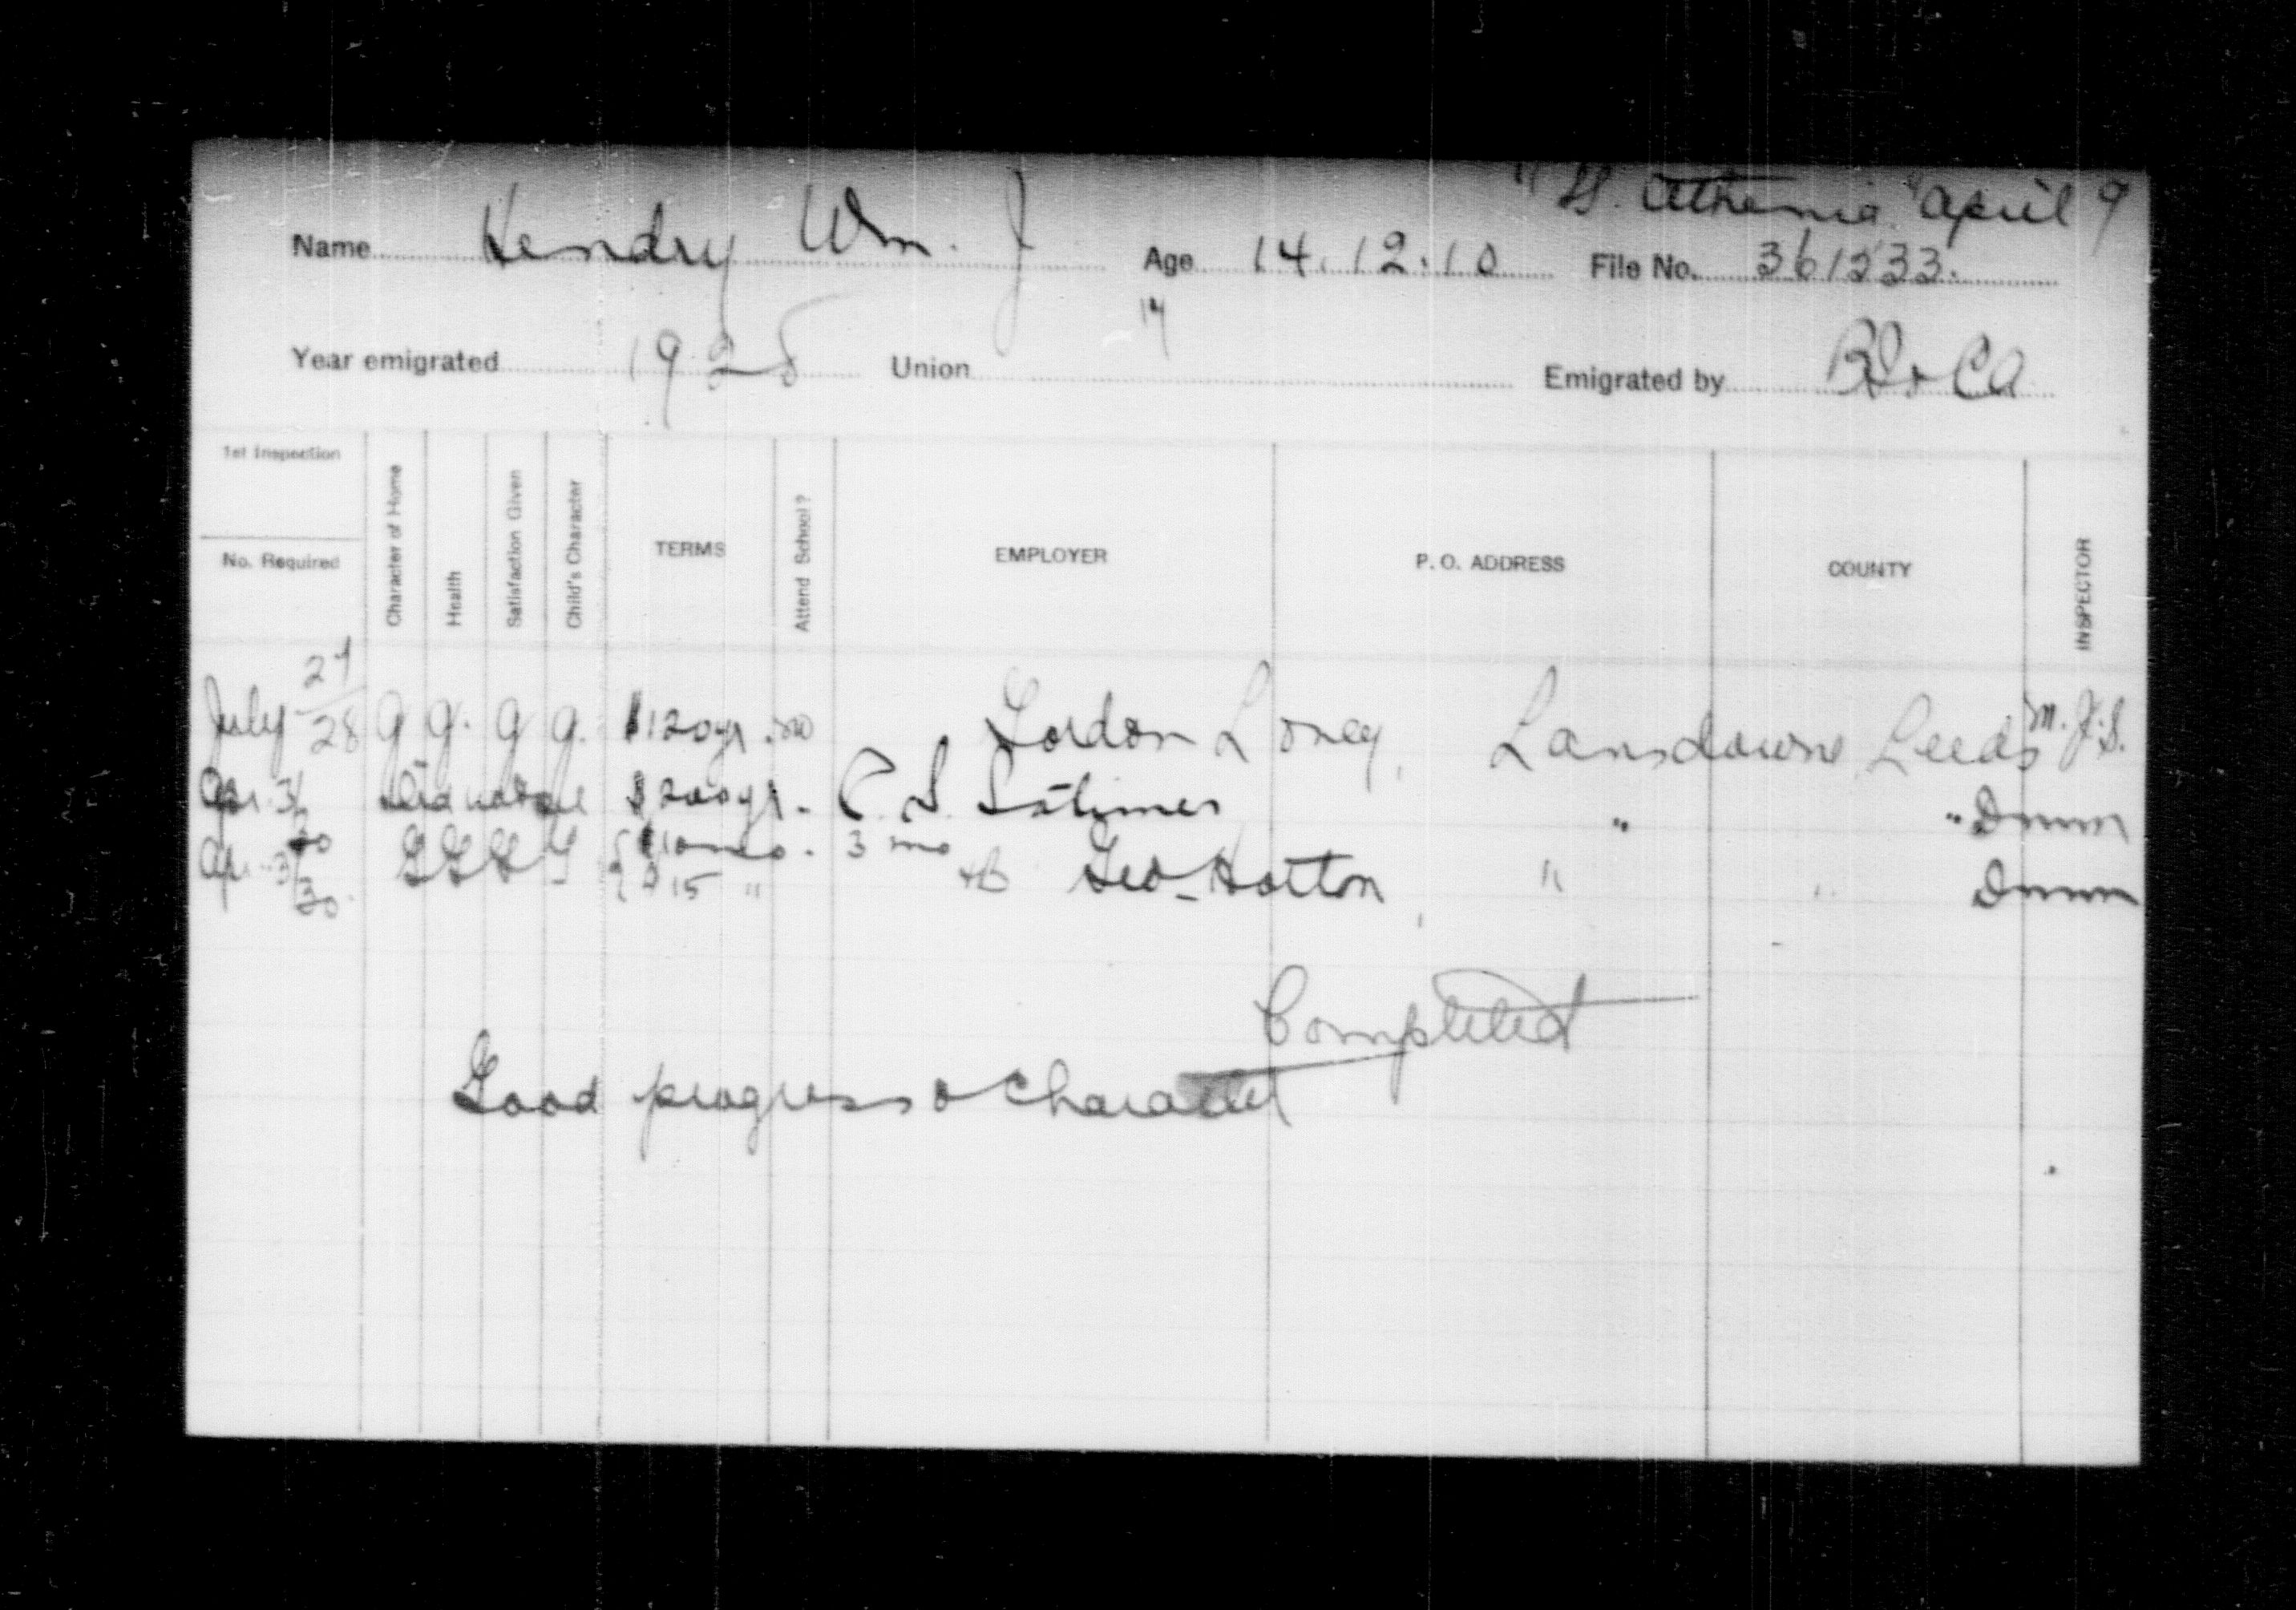 "SS. Athenia" April 9
Name Hendry Wm. J Age 14.12.10 File No. 361233.
17
Year emigrated 1928 Union Emigrated by
1st Inspection
No. Required
Character of Home
Health
Satisfaction Given
Child's Character
TERMS
Attend School?
EMPLOYER
P. O. ADDRESS
COUNTY
INSPECTOR
July 27/28 g g. g g. $120 yr. no Gordon Loney, Lansdowne Leeds M. J. S.
Apr. 3/30 Did not see $200 yr. C. S. Latimer " "
Apr. 3/30. G G G G $10 mo. 3 mo $15 " Geo. Horton, " "
Completed
Good progress & character